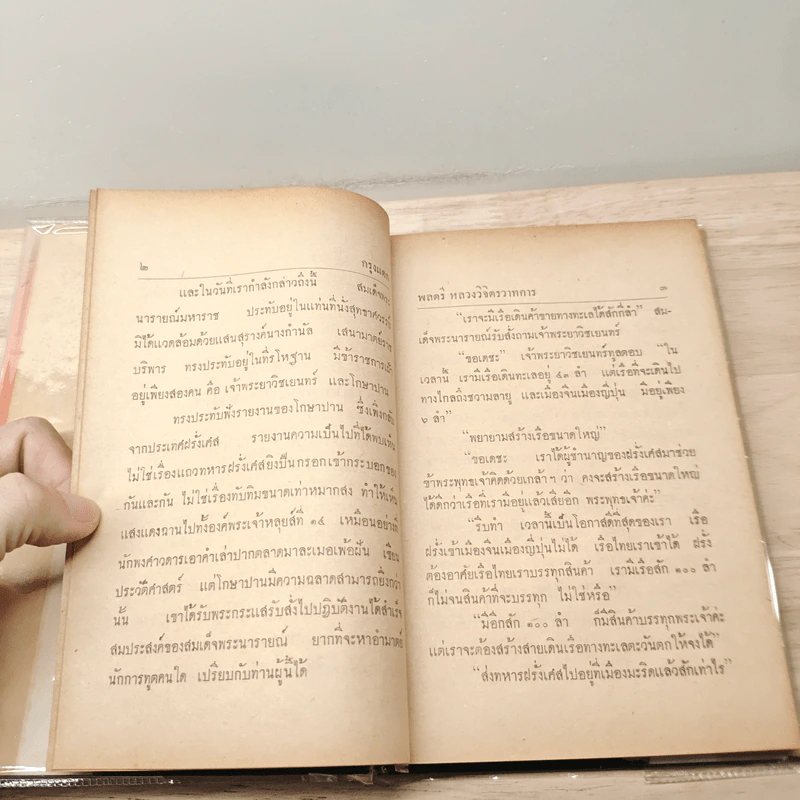 ๒ กรุงแตก
และในวันที่เรากำลังกล่าวถึงนี้ สมเด็จพระ
นารายณ์มหาราช ประทับอยู่ในแท่นที่นั่งสุทธาศวรรย์
มิได้แวดล้อมด้วยแสนสุรางค์นางกำนัล เสนามาตย์ราช
บริพาร ทรงประทับอยู่ในที่รโหฐาน มีข้าราชการเฝ้า
อยู่เพียงสองคน คือ เจ้าพระยาวิชเยนทร์ และโกษาปาน
ทรงประทับฟังรายงานของโกษาปาน ซึ่งเพิ่งกลับ
จากประเทศฝรั่งเศส รายงานความเป็นไปที่ได้พบเห็น
ไม่ใช่เรื่องแถวทหารฝรั่งเศสยิงปืนกรอกเข้ากระบอกของ
กันและกัน ไม่ใช่เรื่องทับทิมขนาดเท่าหมากสง ทำให้เห็น
แสงแดงฉานไปทั้งองค์พระเจ้าหลุยส์ที่ ๑๔ เหมือนอย่างที่
นักพงศาวดารเอาคำเล่าปากตลาดมาละเมอเพ้อฝัน เขียน
ประวัติศาสตร์ แต่โกษาปานมีความฉลาดสามารถยิ่งกว่า
นั้น เขาได้รับพระกระแสรับสั่งไปปฏิบัติงานได้สำเร็จ
สมประสงค์ของสมเด็จพระนารายณ์ ยากที่จะหาอำมาตย์
นักการทูตคนใด เปรียบกับท่านผู้นี้ได้
พลตรี หลวงวิจิตรวาทการ ๓
“เราจะมีเรือเดินค้าขายทางทะเลได้สักกี่ลำ” สม-
เด็จพระนารายณ์รับสั่งถามเจ้าพระยาวิชเยนทร์
“ขอเดชะ” เจ้าพระยาวิชเยนทร์ทูลตอบ “ใน
เวลานี้ เรามีเรือเดินทะเลอยู่ ๕๓ ลำ แต่เรือที่จะเดินไป
ทางไกลถึงชวามลายู และเมืองจีนเมืองญี่ปุ่น มีอยู่เพียง
๖ ลำ”
“พยายามสร้างเรือขนาดใหญ่”
“ขอเดชะ เราได้ผู้ชำนาญของฝรั่งเศสมาช่วย
ข้าพระพุทธเจ้าคิดด้วยเกล้าฯ ว่า คงจะสร้างเรือขนาดใหญ่
ได้ดีกว่าเรือที่เรามีอยู่แล้วเสียอีก พระพุทธเจ้าค่ะ”
“รีบทำ เวลานี้เป็นโอกาสดีที่สุดของเรา เรือ
ฝรั่งเข้าเมืองจีนเมืองญี่ปุ่นไม่ได้ เรือไทยเราเข้าได้ ฝรั่ง
ต้องอาศัยเรือไทยเราบรรทุกสินค้า เรามีเรือสัก ๑๐๐ ลำ
ก็ไม่จนสินค้าที่จะบรรทุก ไม่ใช่หรือ”
“มีอีกสัก ๑๐๐ ลำ ก็มีสินค้าบรรทุกพระเจ้าค่ะ
แต่เราจะต้องสร้างสายเดินเรือทางทะเลตะวันตกให้จงได้”
“ส่งทหารฝรั่งเศสไปอยู่ที่เมืองมะริดแล้วสักเท่าไร”